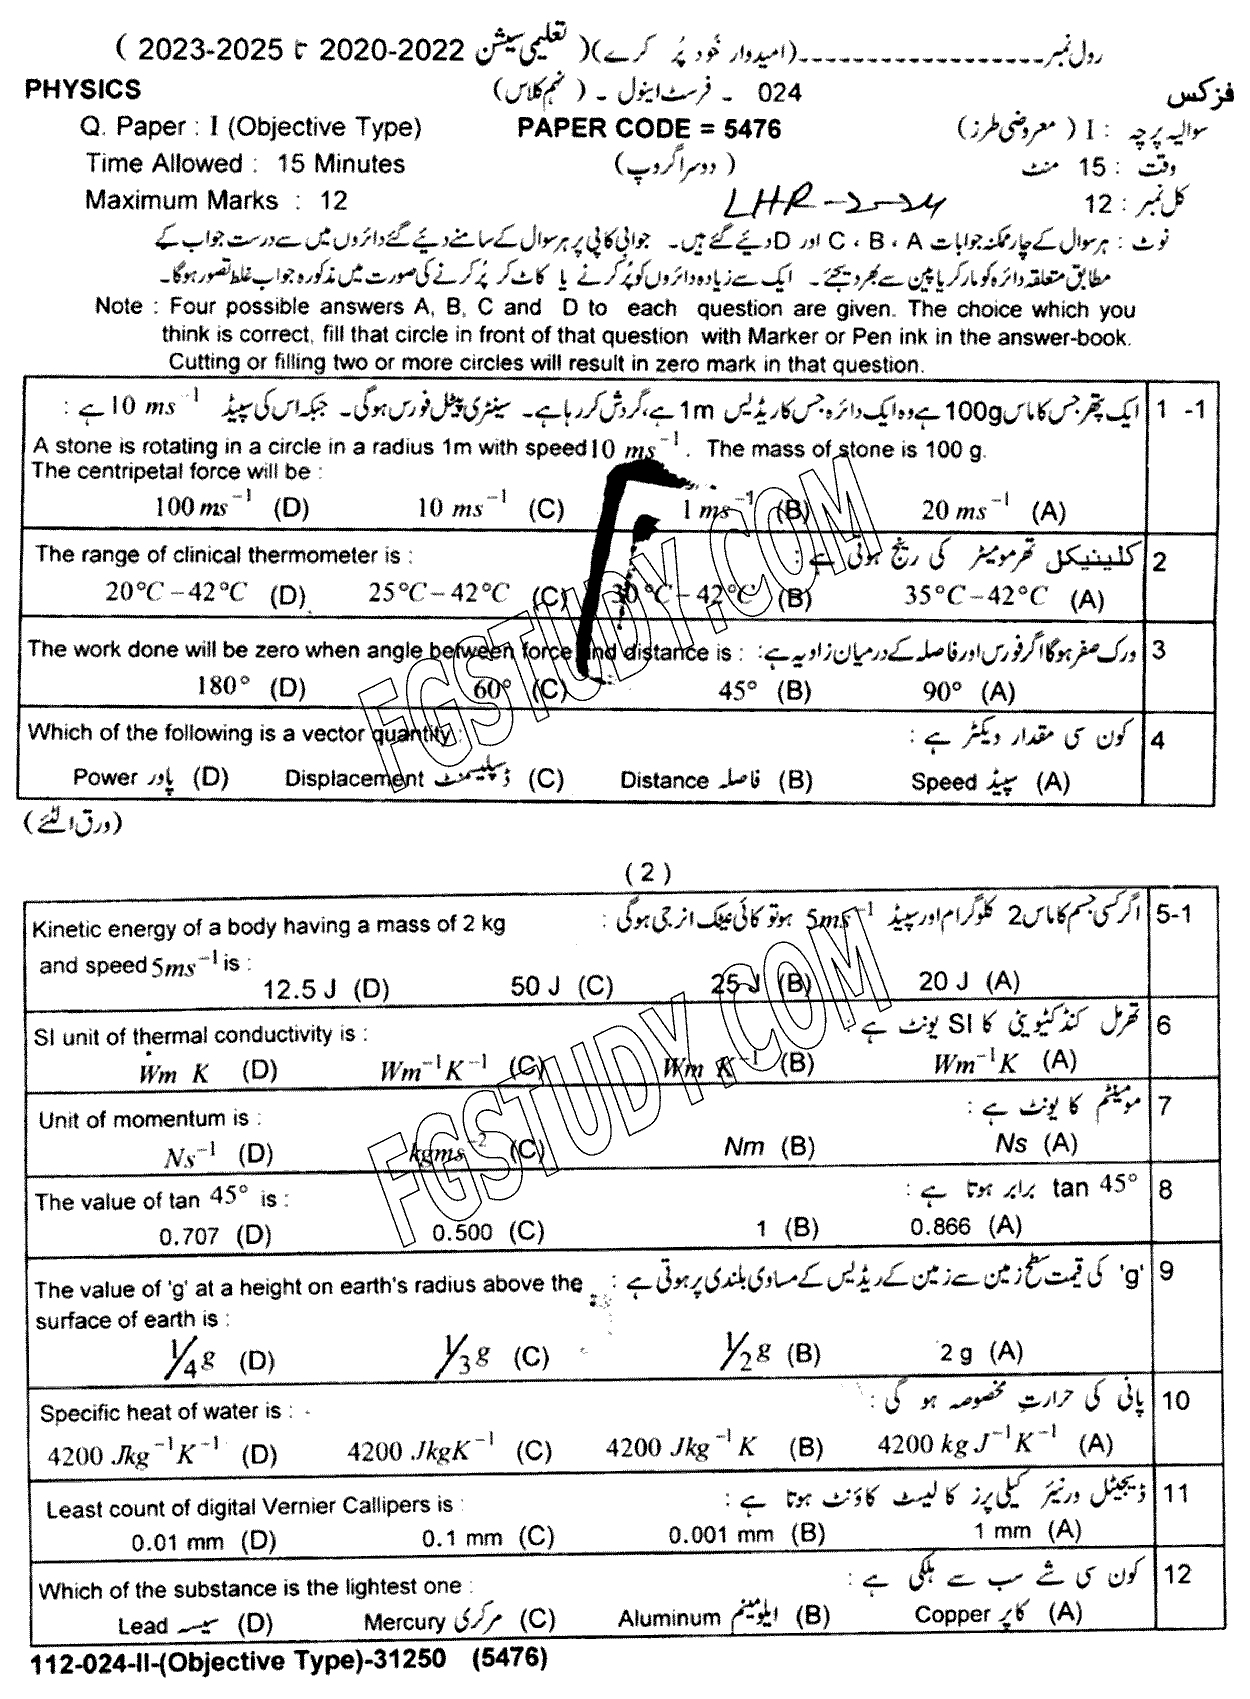 رول نمبر ------------------(امیدوار خُود پُر کرے)( تعلیمی سیشن 2022-2020 تا 2025-2023 )
PHYSICS 024 ۔ فرسٹ اینول ۔ ( نہم کلاس) فزکس
Q. Paper : I (Objective Type) PAPER CODE = 5476 سوالیہ پرچہ : I ( معروضی طرز)
Time Allowed : 15 Minutes ( دوسرا گروپ) وقت : 15 منٹ
Maximum Marks : 12 LHR-2-24 کل نمبر : 12
نوٹ : ہر سوال کے چار ممکنہ جوابات A ، B ، C اور D دئیے گئے ہیں۔ جوابی کاپی پر ہر سوال کے سامنے دئیے گئے دائروں میں سے درست جواب کے
مطابق متعلقہ دائرہ کو مارکر یا پین سے بھر دیجئے۔ ایک سے زیادہ دائروں کو پُر کرنے یا کاٹ کر پُر کرنے کی صورت میں مذکورہ جواب غلط تصور ہوگا۔
Note : Four possible answers A, B, C and D to each question are given. The choice which you
think is correct, fill that circle in front of that question with Marker or Pen ink in the answer-book.
Cutting or filling two or more circles will result in zero mark in that question.
1 -1 ایک پتھر جس کا ماس 100g ہے وہ ایک دائرہ جس کا ریڈیس 1m ہے، گردش کر رہا ہے۔ سینٹری پیٹل فورس ہوگی۔ جبکہ اس کی سپیڈ 10 ms⁻¹ ہے :
A stone is rotating in a circle in a radius 1m with speed 10 ms⁻¹. The mass of stone is 100 g.
The centripetal force will be :
100 ms⁻¹ (D) 10 ms⁻¹ (C) 1 ms⁻¹ (B) 20 ms⁻¹ (A)
The range of clinical thermometer is : کلینیکل تھرمومیٹر کی رینج ہوتی ہے : 2
20°C – 42°C (D) 25°C – 42°C (C) 30°C – 42°C (B) 35°C – 42°C (A)
The work done will be zero when angle between force and distance is : ورک صفر ہوگا اگر فورس اور فاصلہ کے درمیان زاویہ ہے: 3
180° (D) 60° (C) 45° (B) 90° (A)
Which of the following is a vector quantity : کون سی مقدار ویکٹر ہے : 4
Power پاور (D) Displacement ڈسپلیسمنٹ (C) Distance فاصلہ (B) Speed سپیڈ (A)
(ورق الٹئے)
( 2 )
5-1 اگر کسی جسم کا ماس 2 کلوگرام اور سپیڈ 5ms⁻¹ ہو تو کائی نیٹک انرجی ہوگی :
Kinetic energy of a body having a mass of 2 kg
and speed 5ms⁻¹ is :
12.5 J (D) 50 J (C) 25 J (B) 20 J (A)
SI unit of thermal conductivity is : تھرمل کنڈکٹیویٹی کا SI یونٹ ہے : 6
Wm K (D) Wm⁻¹K⁻¹ (C) Wm K⁻¹ (B) Wm⁻¹K (A)
Unit of momentum is : مومینٹم کا یونٹ ہے : 7
Ns⁻¹ (D) kgms⁻² (C) Nm (B) Ns (A)
The value of tan 45° is : tan 45° برابر ہوتا ہے : 8
0.707 (D) 0.500 (C) 1 (B) 0.866 (A)
The value of 'g' at a height on earth's radius above the 'g' کی قیمت سطح زمین سے زمین کے ریڈیس کے مساوی بلندی پر ہوتی ہے : 9
surface of earth is :
1/4 g (D) 1/3 g (C) 1/2 g (B) 2 g (A)
Specific heat of water is : پانی کی حرارتِ مخصوصہ ہو گی : 10
4200 Jkg⁻¹K⁻¹ (D) 4200 JkgK⁻¹ (C) 4200 Jkg⁻¹K (B) 4200 kg J⁻¹K⁻¹ (A)
Least count of digital Vernier Callipers is : ڈیجیٹل ورنیئر کیلی پرز کا لیسٹ کاؤنٹ ہوتا ہے : 11
0.01 mm (D) 0.1 mm (C) 0.001 mm (B) 1 mm (A)
Which of the substance is the lightest one : کون سی شے سب سے ہلکی ہے : 12
Lead سیسہ (D) Mercury مرکری (C) Aluminum ایلومینیم (B) Copper کاپر (A)
112-024-II-(Objective Type)-31250 (5476)
FGSTUDY.COM
FGSTUDY.COM